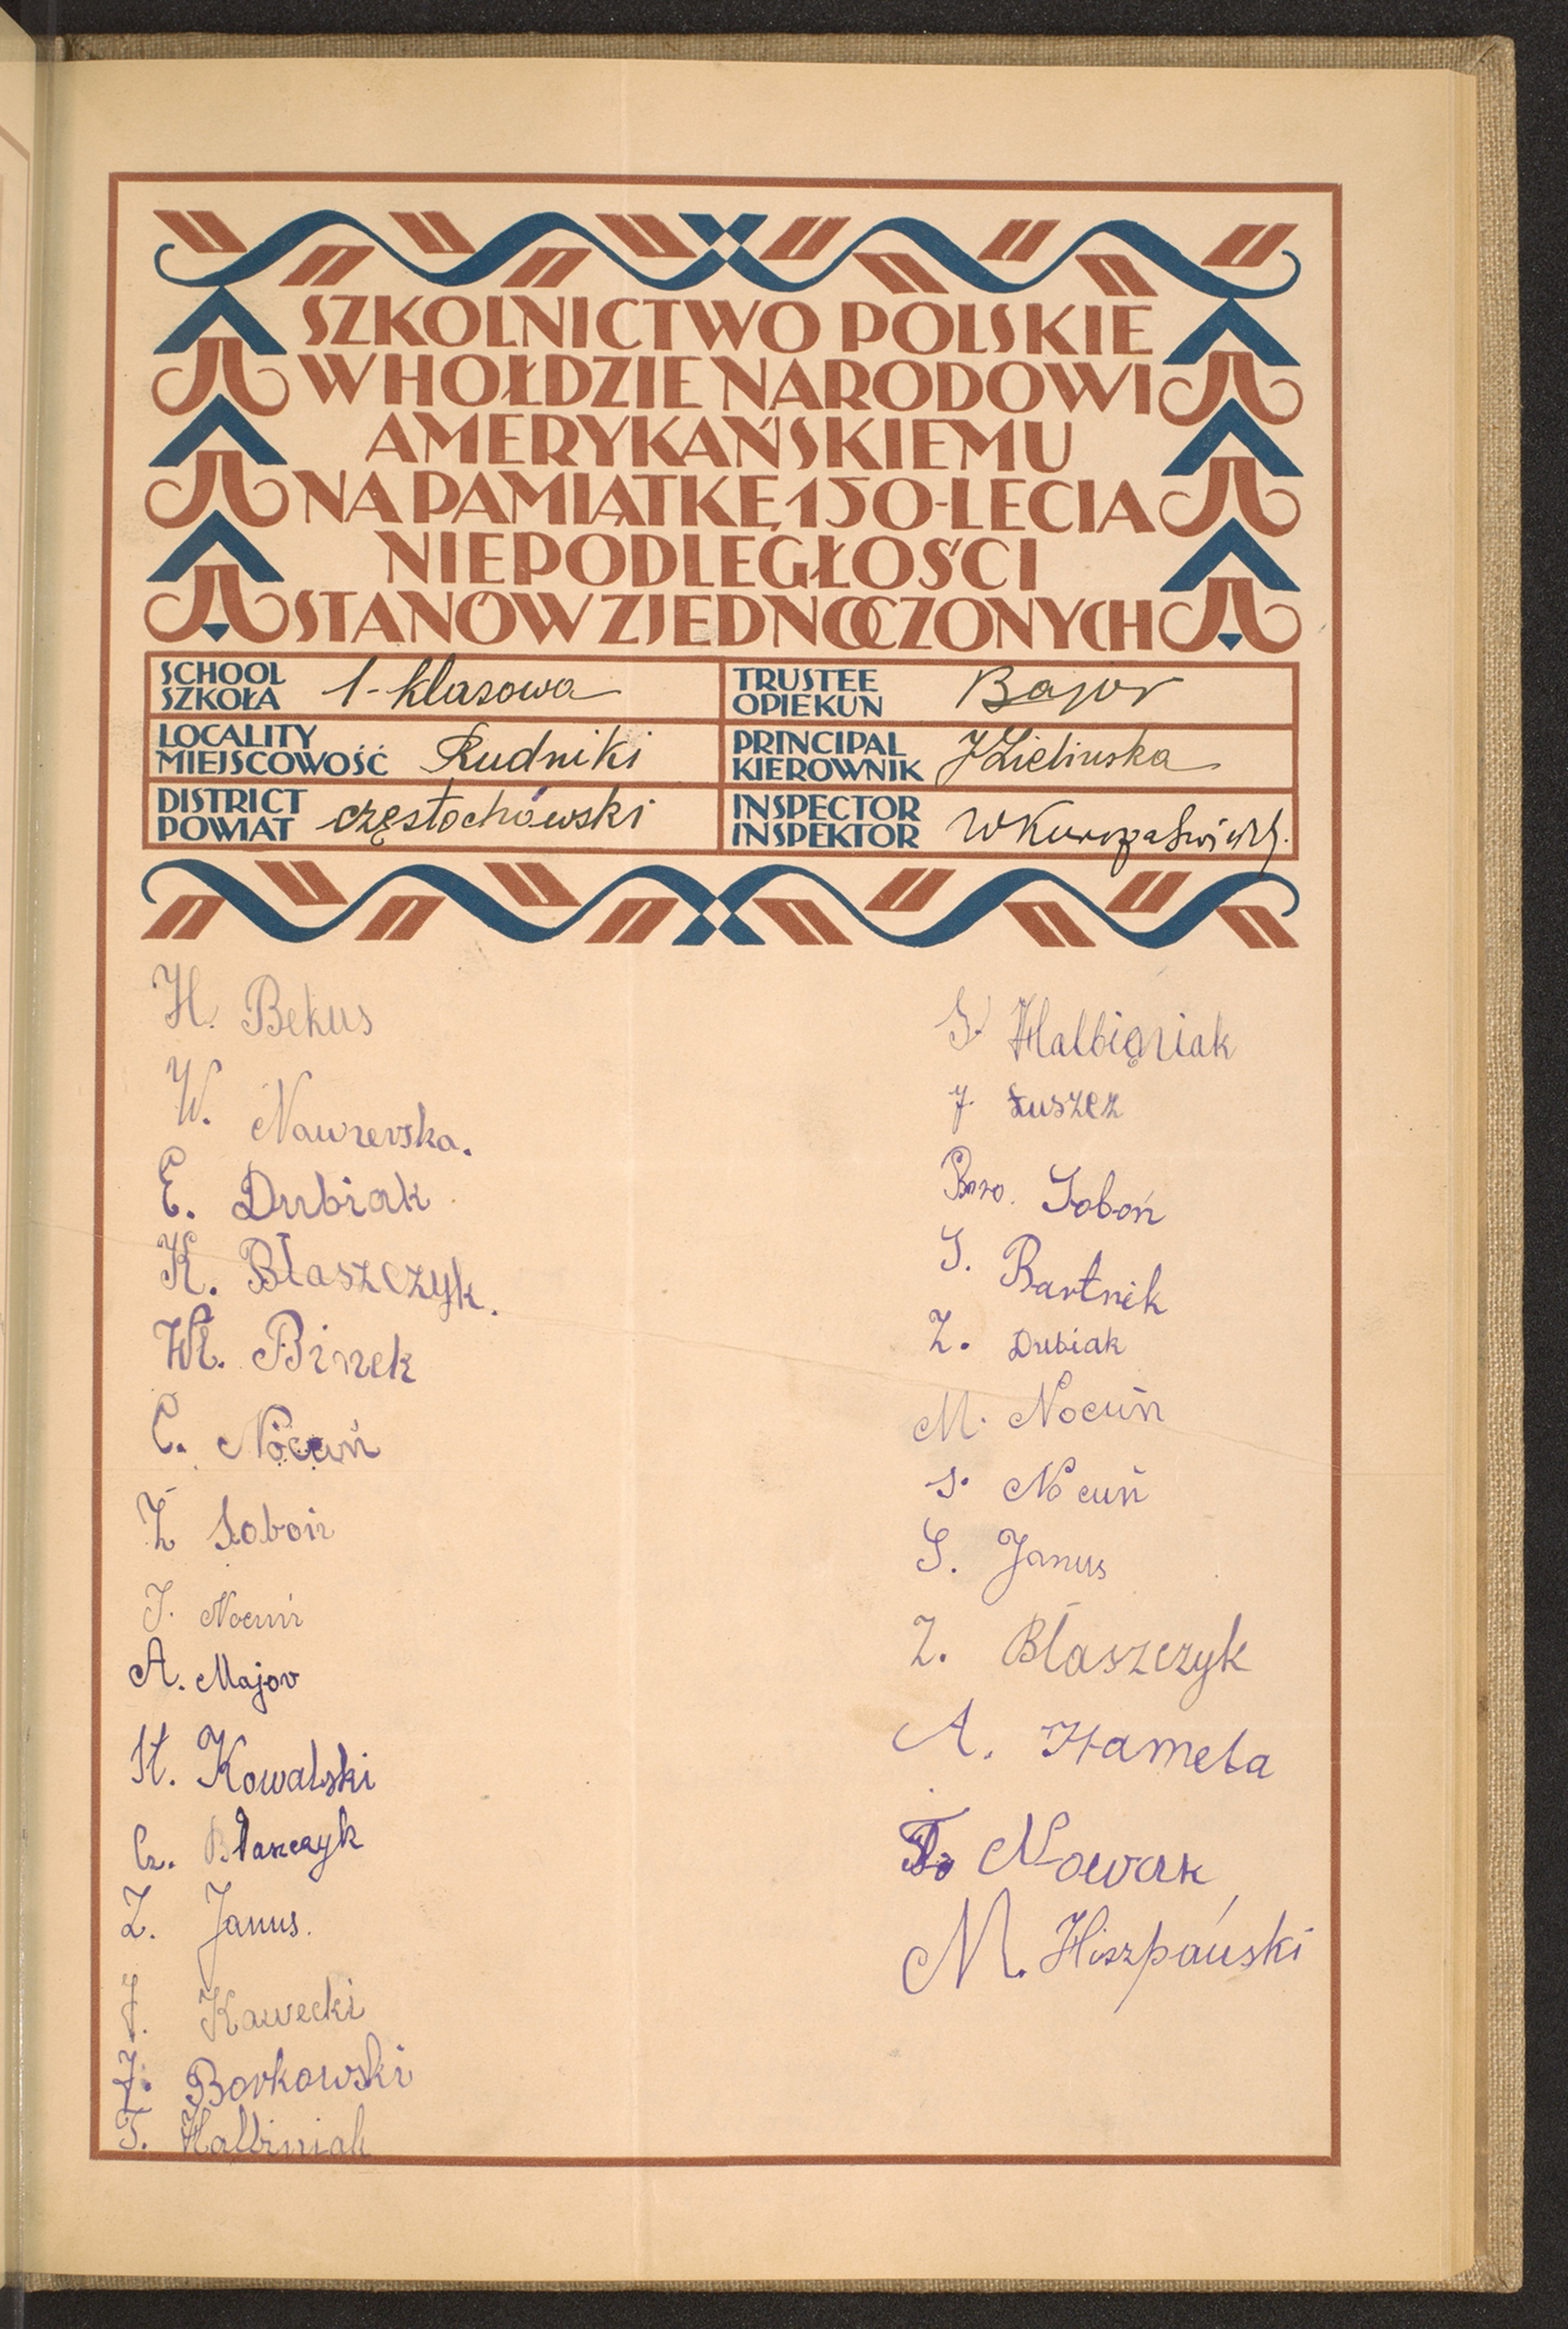 SZKOLNICTWO POLSKIE
W HOŁDZIE NARODOWI
AMERYKAŃSKIEMU
NA PAMIĄTKĘ 150-LECIA
NIEPODLEGŁOŚCI
STANÓW ZJEDNOCZONYCH
SCHOOL
SZKOŁA 1-klasowa
TRUSTEE
OPIEKUN Bajor
LOCALITY
MIEJSCOWOŚĆ Rudniki
PRINCIPAL
KIEROWNIK J Zielinska
DISTRICT
POWIAT częstochówski
INSPECTOR
INSPEKTOR
H. Bekus
W.
E. Dubiak
K. Błaszczyk.
Wł. Binek
C. Nocuń
Z Soboń
J. Nocuń
A. Major
St. Kowalski
Cz. Błaszczyk
Z. Janus.
J. Kawecki
J. Borkowski
T. Halbiniak
S. Halbiqniak
J. Łuszcz
Bro. Soboń
S. Bartnik
Z. Dubiak
M. Nocuń
S. Nocuń
S. Janus
Z. Błaszczyk
A. Hameła
Nowak
M. Hiszpański